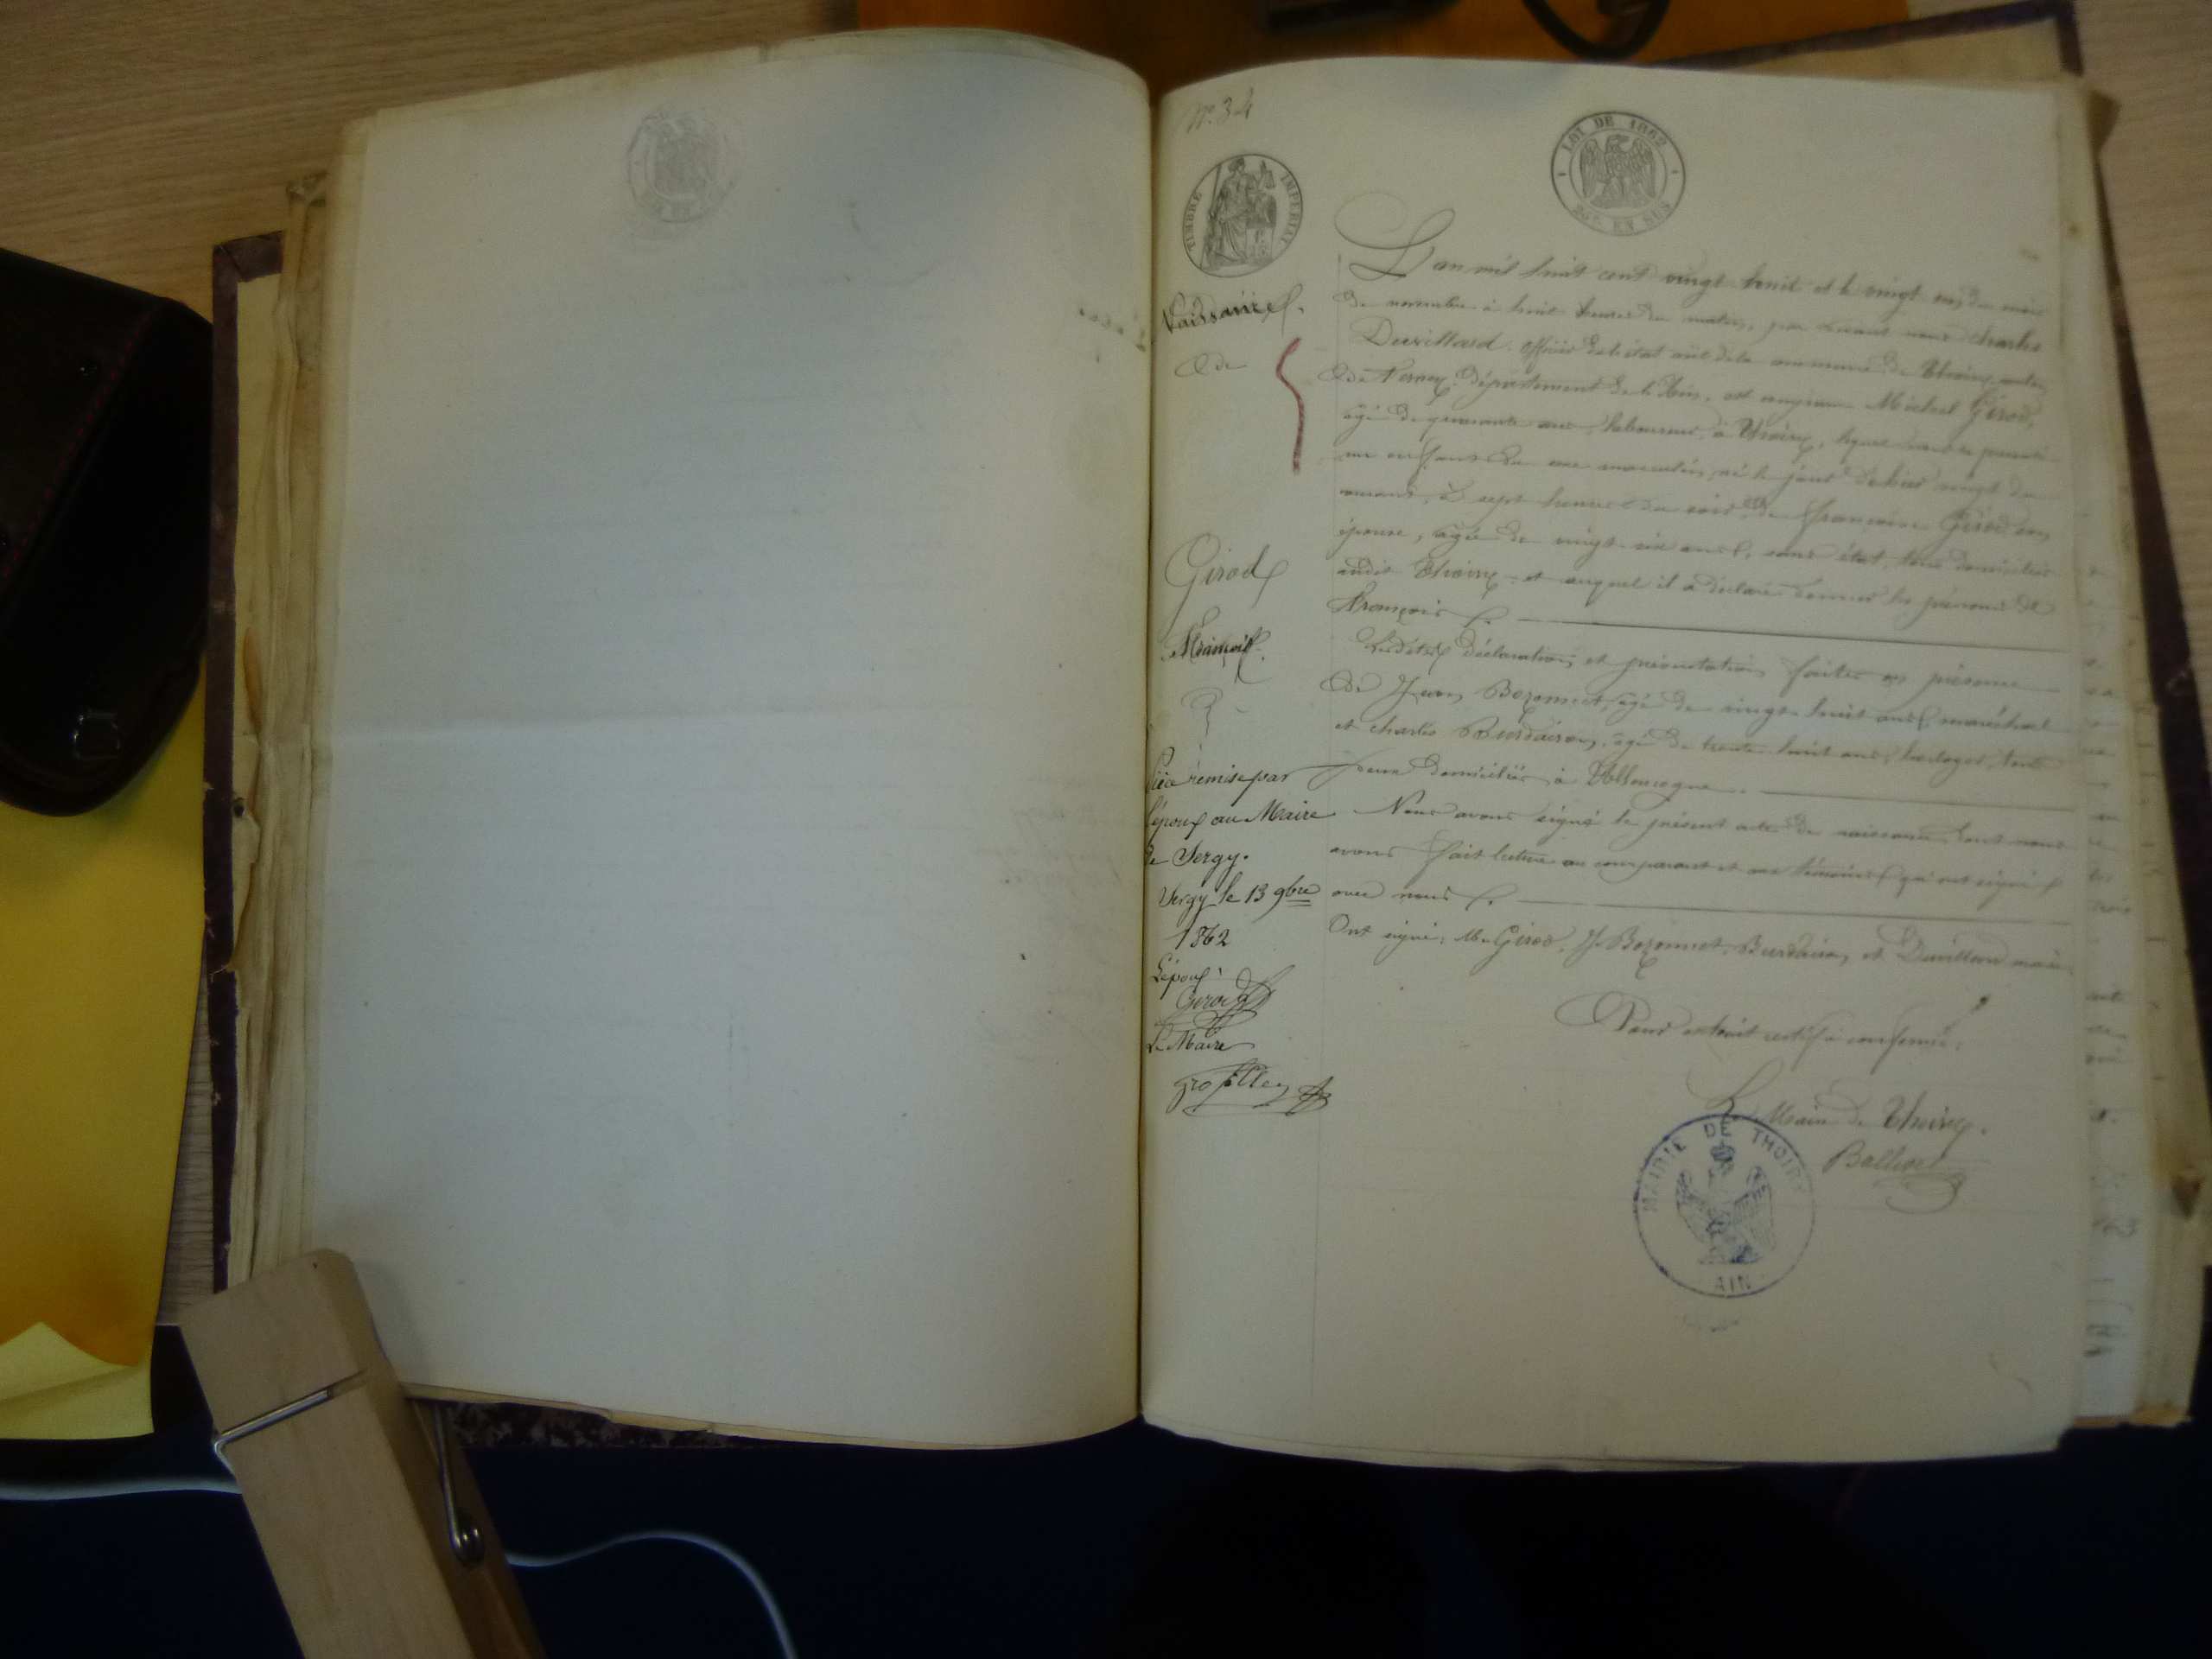 N° 34
TIMBRE IMPERIAL
LOI DE 1862
EN SUS
Naissance
de
Girod
François
Pièce remise par
l'époux au Maire
de Sergy.
Sergy le 13 9bre
1862
L'époux
Girod
Le Maire
L'an mil huit cent vingt huit et le vingt un du mois
de novembre à huit heures du matin, par devant nous charles
Duvillard officier de l'état civil de la commune de Thoiry, canton
de Ferney, département de l'Ain, est comparu Michel Girod,
âgé de quarante ans, laboureur, à Thoiry, lequel nous a présenté
un enfant du sexe masculin, né le jour d'hier vingt du
courant, à sept heures du soir, de Françoise Girod son
épouse, âgée de vingt six ans, sans état, tous domiciliés
audit Thoiry, et auquel il a déclaré donner les prénoms de
François
Lesdites déclaration et présentation faites en présence
de Jean Bozonnet, âgé de vingt huit ans, maréchal
et charles Burdairon, âgé de trente huit ans, horloger, tous
deux domiciliés à Allemogne
Nous avons signé le présent acte de naissance dont nous
avons fait lecture au comparant et aux témoins qui ont signé
avec nous
Ont signé: M. Girod, J. Bozonnet, Burdairon, et Duvillard maire
Pour extrait certifié conforme:
Le Maire de Thoiry.
MAIRIE DE THOIRY
AIN